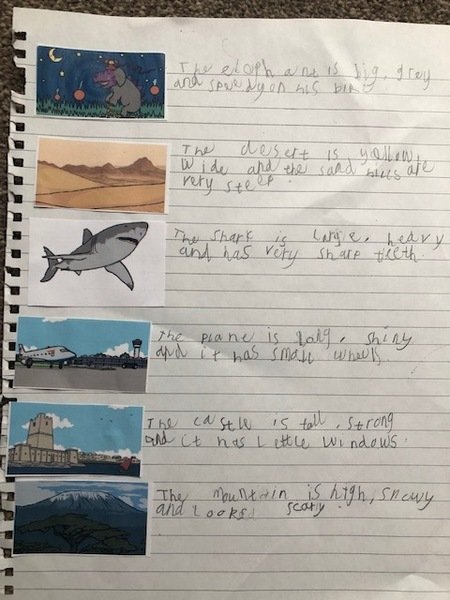 The elephant is big, grey
and speedy on his bike
The desert is yellow,
wide and the sand hills are
very steep.
The shark is large, heavy
and has very sharp teeth.
The plane is long, shiny
and it has small wheels.
The castle is tall, strong
and it has little windows.
The mountain is high, snowy
and looked scary.